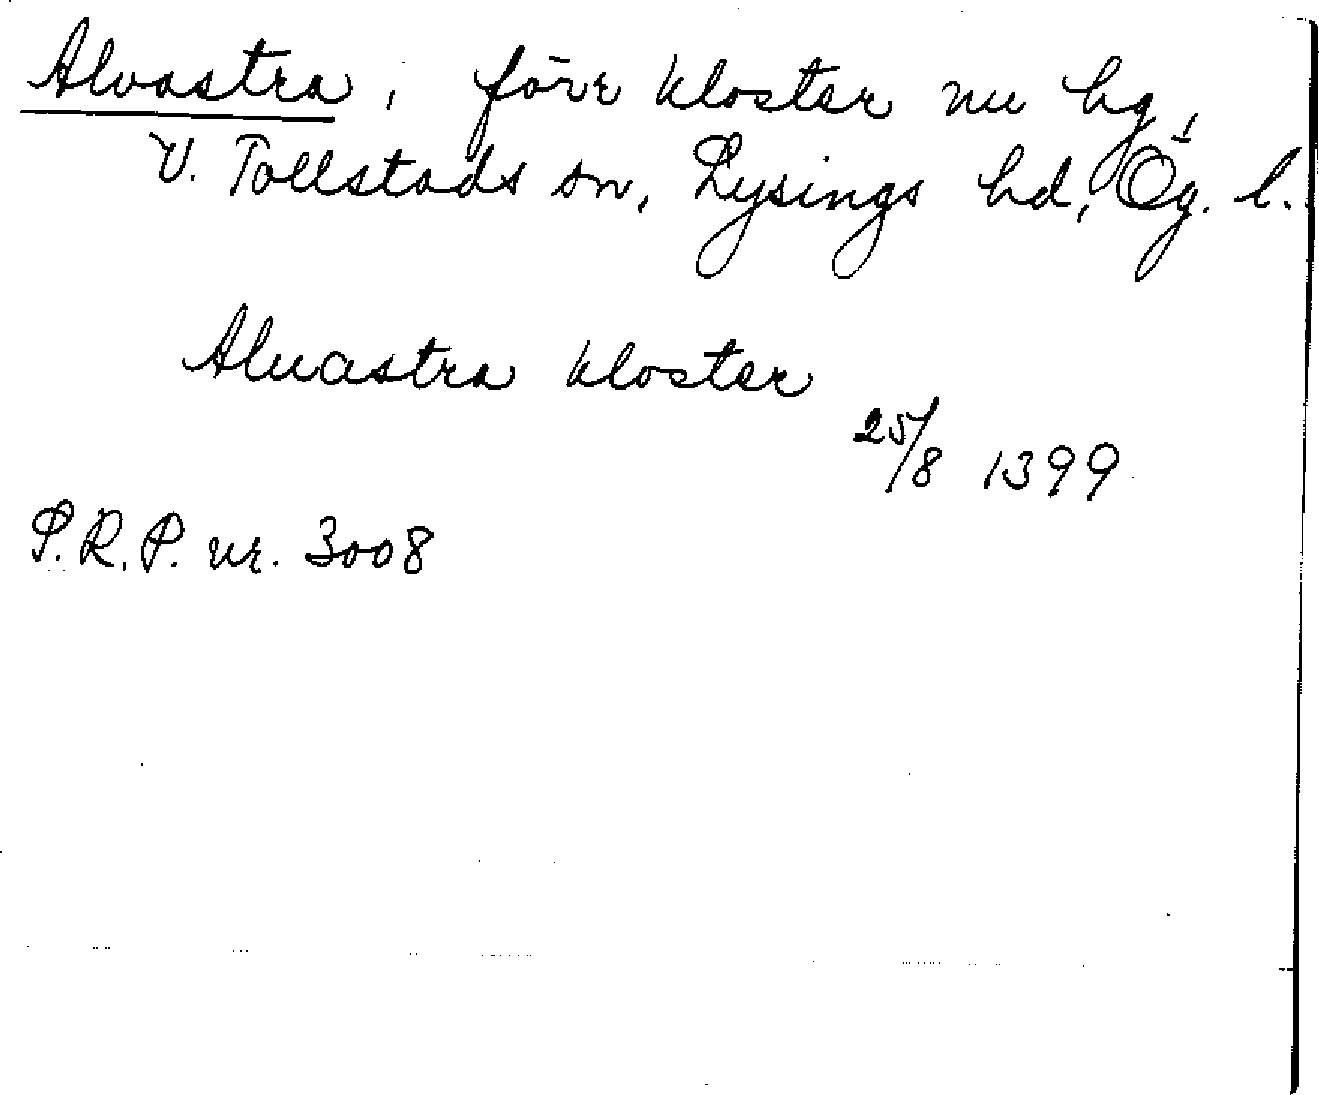 Alvastra, förr kloster nu hg,
V. Tollstads sn, Lysings hd, Ög. l.
Aluastra kloster
25/8 1399
P.R.P. nr. 3008